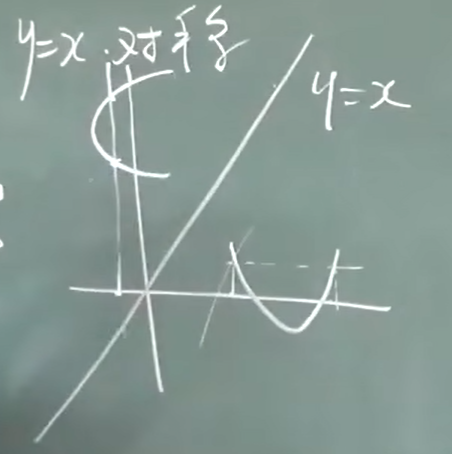 y=x 对称
y=x